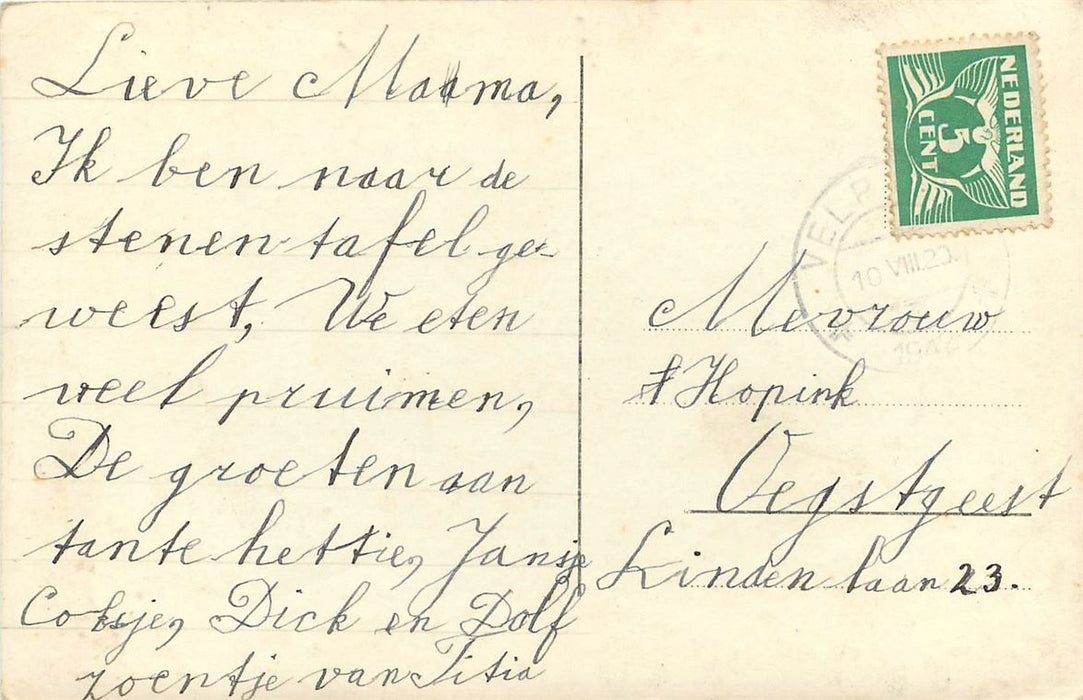 Lieve Mama,
Ik ben naar de
stenen tafel ge-
weest, We eten
veel pruimen,
De groeten aan
tante hettie, Jansje
Cokje, Dick en Dolf
zoentje van Titia
NEDERLAND
5
CENT
VELP
10 VIII.23.
194
Mevrouw
Hopink
Oegstgeest
Linden laan 23.